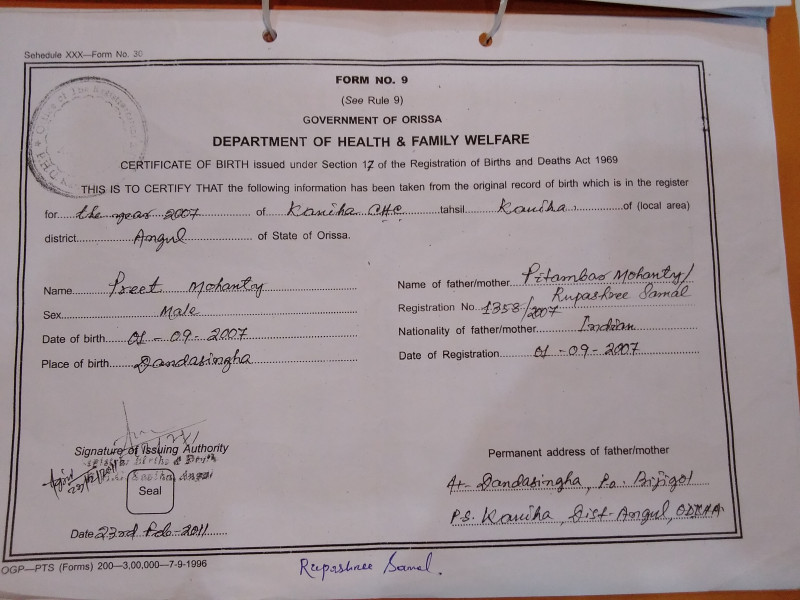 Schedule XXX—Form No. 30
FORM NO. 9
(See Rule 9)
GOVERNMENT OF ORISSA
DEPARTMENT OF HEALTH & FAMILY WELFARE
CERTIFICATE OF BIRTH issued under Section 17 of the Registration of Births and Deaths Act 1969
THIS IS TO CERTIFY THAT the following information has been taken from the original record of birth which is in the register
for the year 2007 of Kaniha CHC tahsil Kaniha of (local area)
district Angul of State of Orissa.
Name Preet Mohanty
Sex Male
Date of birth 01-09-2007
Place of birth Dandasingha
Name of father/mother Pitambar Mohanty/
Rupashree Samal
Registration No. 1358/2007
Nationality of father/mother Indian
Date of Registration 01-09-2007
Signature of Issuing Authority
Seal
Date 23rd Feb-2011
Permanent address of father/mother
At- Dandasingha, Po. Bijigol
PS. Kaniha, Dist-Angul, ODISHA.
OGP—PTS (Forms) 200—3,00,000—7-9-1996
Rupashree Samal.